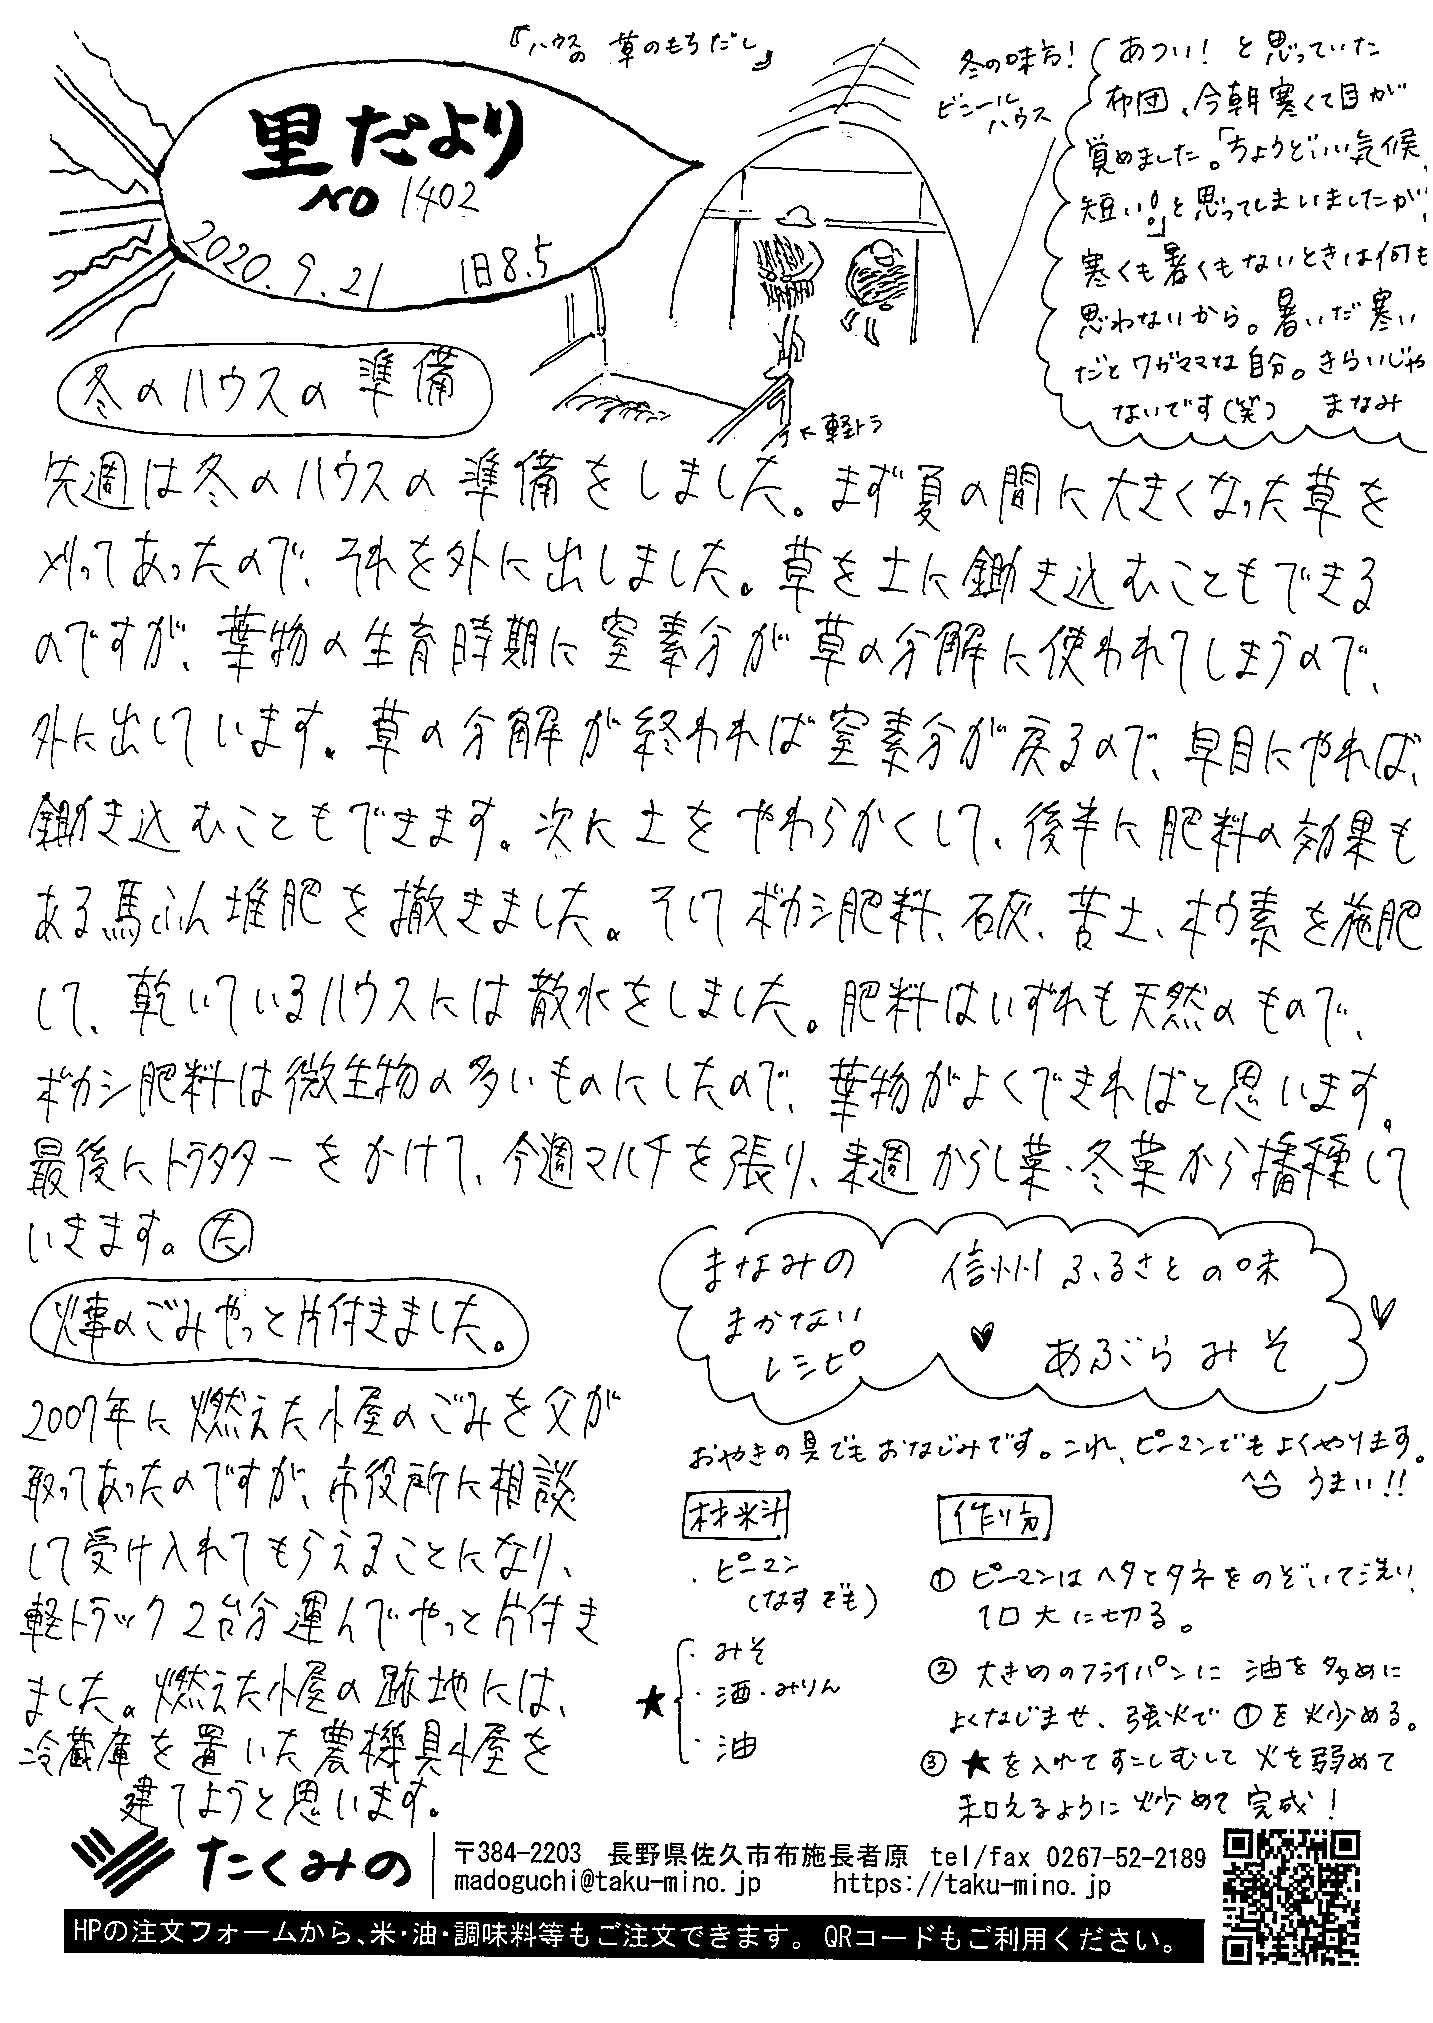 『ハウスの 草のもちだし』
里だより
NO 1402
2020.9.21 旧8.5
冬の味方!
ビニール
ハウス
あつい! と思っていた
布団、今朝寒くて目が
覚めました。「ちょうどいい気候、
短い!。」と思ってしまいましたが、
寒くも暑くもないときは何も
思わないから。暑いだ寒い
だとワガママな自分。きらいじゃ
ないです(笑) まなみ
軽トラ
冬のハウスの準備
先週は冬のハウスの準備をしました。まず夏の間に大きくなった草を
刈ってあったので、それを外に出しました。草を土に鋤き込むこともできる
のですが、葉物の生育時期に窒素分が草の分解に使われてしまうので、
外に出しています。草の分解が終われば窒素分が戻るので、早目にやれば、
鋤き込むこともできます。次に土をやわらかくして、後半に肥料の効果も
ある馬ふん堆肥を撤きました。そしてボカシ肥料、石灰、苦土、ホウ素を施肥
して、乾いているハウスには散水をしました。肥料はいずれも天然のもので、
ボカシ肥料は微生物の多いものにしたので、葉物がよくできればと思います。
最後にトラクターをかけて、今週マルチを張り、来週からし菜・冬菜から播種して
いきます。(た)
火事のごみやっと片付きました。
2007年に燃えた小屋のごみを父が
取ってあったのですが、市役所に相談
して受け入れてもらえることになり、
軽トラック2台分運んでやっと片付き
ました。燃えた小屋の跡地には、
冷蔵庫を置いた農機具小屋を
建てようと思います。
まなみの
まかない
レシピ
信州ふるさとの味
あぶらみそ
おやきの具でもおなじみです。これ、ピーマンでもよくやります。
うまい!!
材料
・ピーマン
(なすでも)
★
・みそ
・酒・みりん
・油
作り方
① ピーマンはヘタとタネをのぞいて洗い、
1口大に切る。
② 大きめのフライパンに 油を多めに
よくなじませ、強火で①を炒める。
③ ★を入れてすこしむして火を弱めて
和えるように炒めて完成!
たくみの
〒384-2203 長野県佐久市布施長者原 tel/fax 0267-52-2189
madoguchi@taku-mino.jp https://taku-mino.jp
HPの注文フォームから、米・油・調味料等もご注文できます。QRコードもご利用ください。